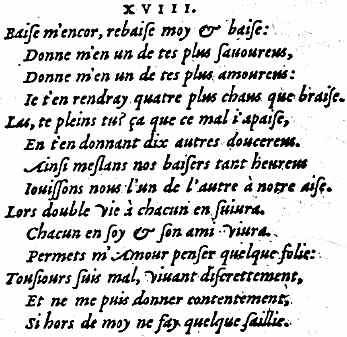 XVIII.
Baiſe m'encor, rebaiſe moy & baiſe:
Donne m'en un de tes plus ſauoureus,
Donne m'en un de tes plus amoureus:
Ie t'en rendray quatre plus chaus que braiſe.
Las, te pleins tu? ça que ce mal i'apaiſe,
En t'en donnant dix autres doucereus.
Ainſi meſlans nos baiſers tant heureus
Iouiſſons nous l'un de l'autre à notre aiſe.
Lors double vie à chacun en ſuiura.
Chacun en ſoy & ſon ami viura.
Permets m'Amour penſer quelque folie:
Touſiours ſuis mal, viuant diſcrettement,
Et ne me puis donner contentement,
Si hors de moy ne fay quelque ſaillie.